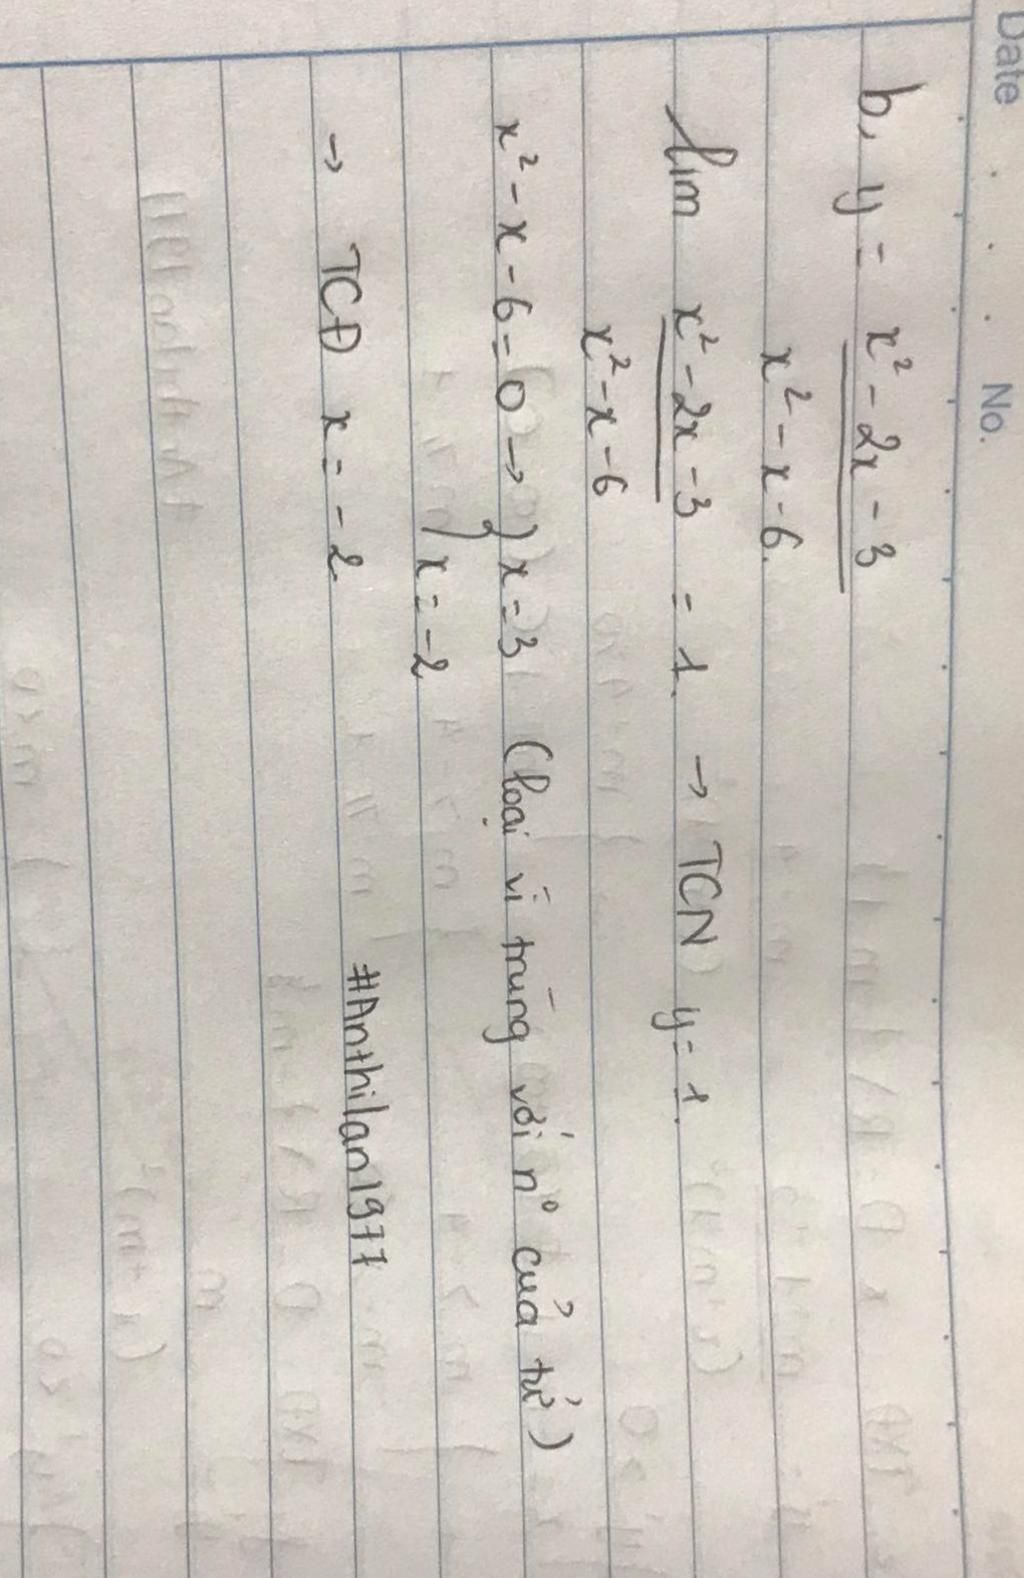 Date . . . No.
b, y = x² - 2x - 3
x² - x - 6.
lim x² - 2x - 3 = 1. → TCN y = 1.
x² - x - 6
x² - x - 6 = 0 → { x = 3 (loại vì trùng với n⁰ của tử)
x = -2
→ TCĐ x = -2 #Anthilan1977